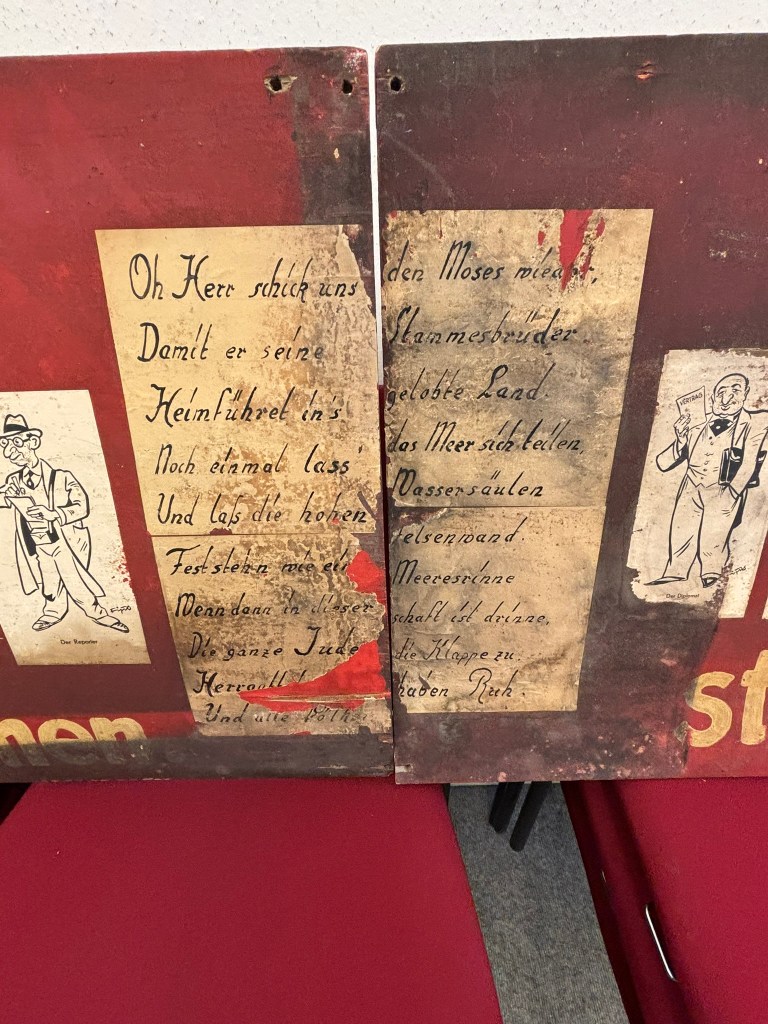 Oh Herr schick uns den Moses wieder,
Damit er seine Stammesbrüder.
Heimführet in's gelobte Land.
Noch einmal lass das Meer sich teilen,
Und laß die hohen Wassersäulen
Feststehn wie ein felsenwand.
Wenn dann in dieser Meeresrinne
Die ganze Jude schaft ist drinne,
Herrgott die Klappe zu.
Und alle Völk haben Ruh.
Der Reporter
VERTRAG
Der Diplomat
men
st